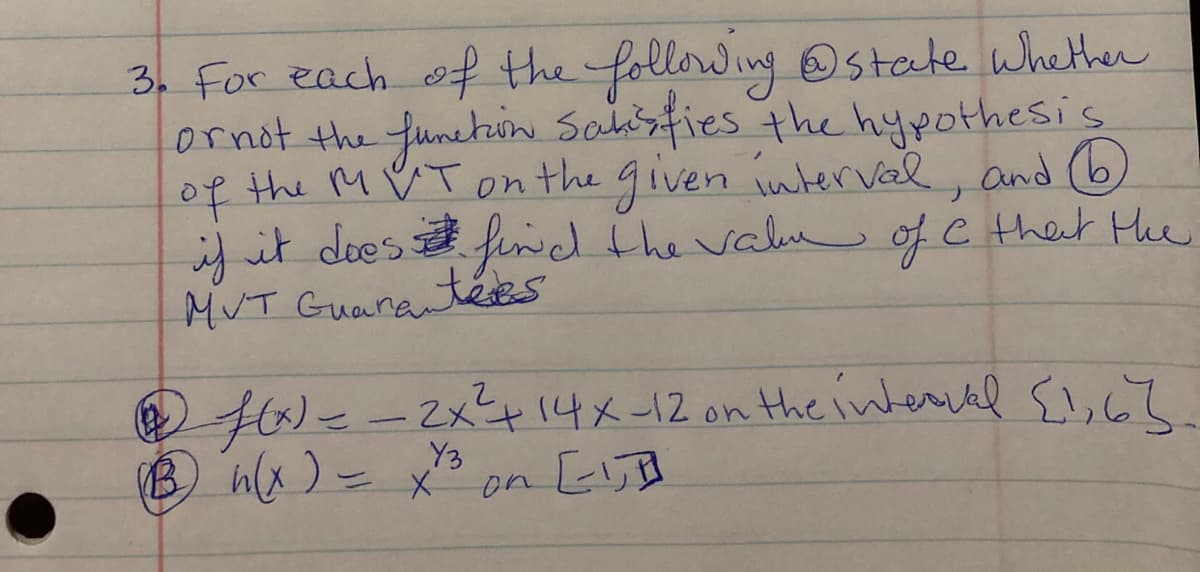 3. For each of the following ⓐ state whether
or not the function satisfies the hypothesis
of the MVT on the given interval, and ⓑ
if it does find the value of c that the
MVT Guarantees
Ⓐ f(x) = -2x²+14x-12 on the interval {1,6}.
Ⓑ h(x) = x^1/3 on [-1,1]